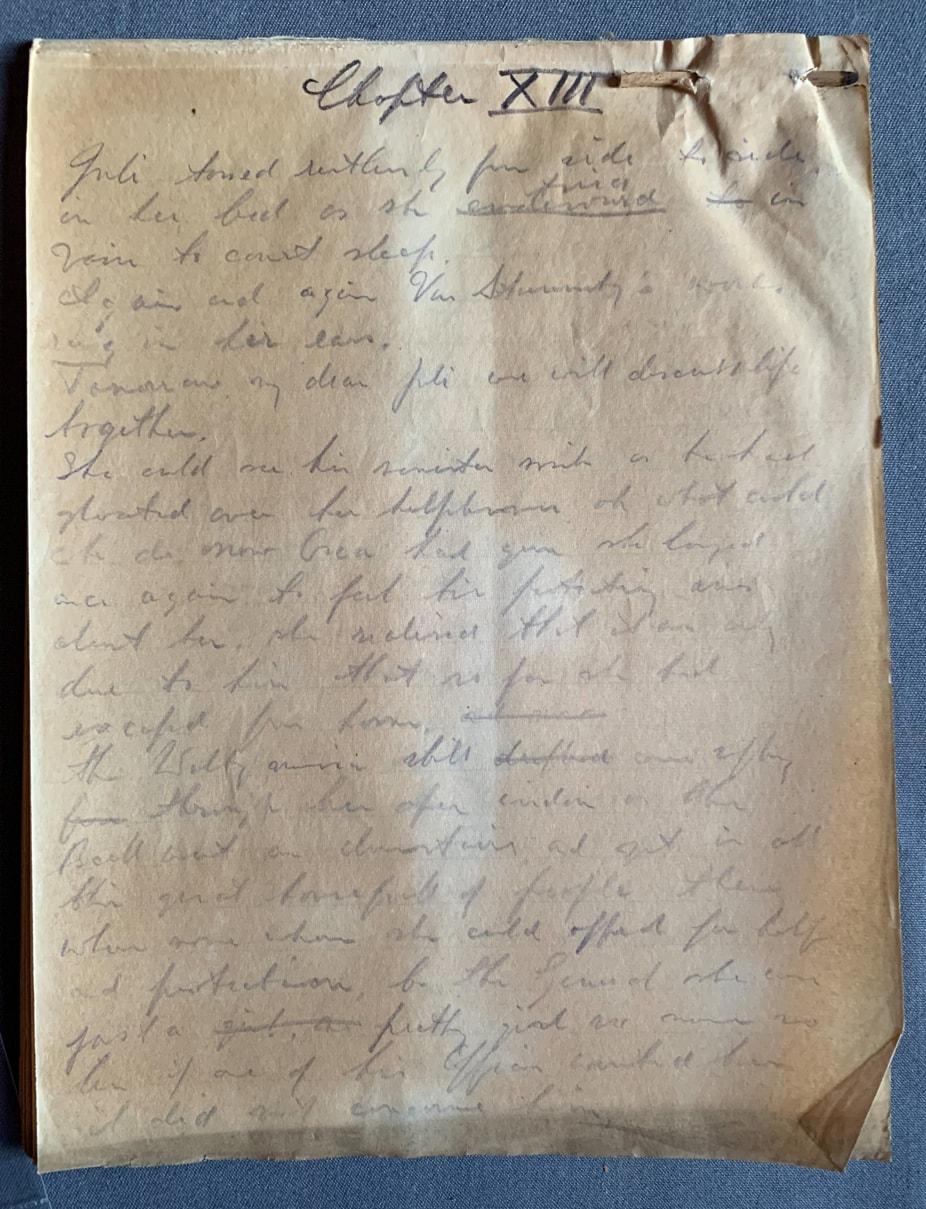 Chapter XIII
Juli tossed restlessly from side to side,
in her bed as she endeavoured tried to in
vain to court sleep.
Again and again Von words
rang in her ears.
Tomorrow my dear Juli we will discuss life
together.
She could see his sinister smile as he had
gloated over her helplessness oh what could
she do now had gone she longed
once again to feel his protecting arms
about her, she realised that it was only
due to him that so far she had
escaped from
the Waltz music still drifted came softly
from through her open window as the
Ball went on downstairs and yet in all
this great housefull of people there
when none whom she could appeal for help
and protection, to the General she was
just a girl, a pretty girl no more no
less if one of his Officers wanted her
it did not concern him